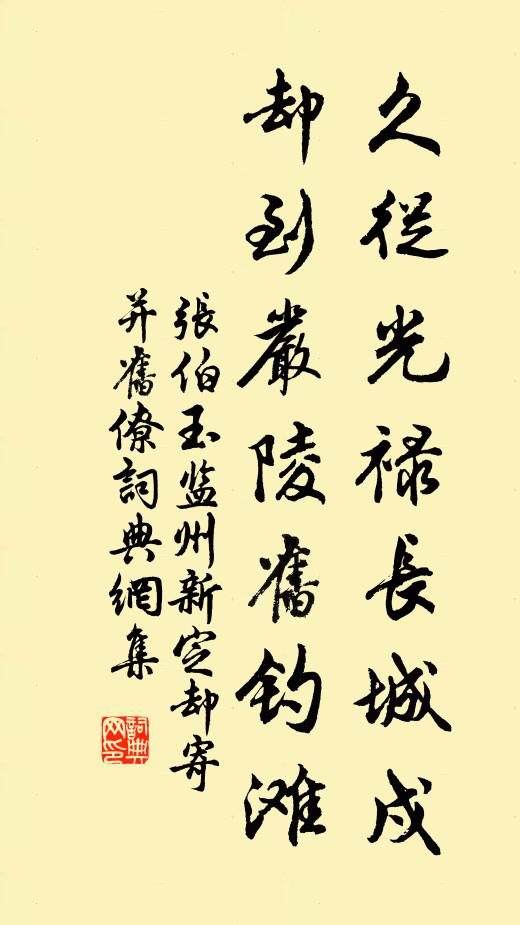 久從光禄長城戍
却到嚴陵舊钓滩
張伯玉监州新定却寄
并舊僚詞典網集
詞典网印